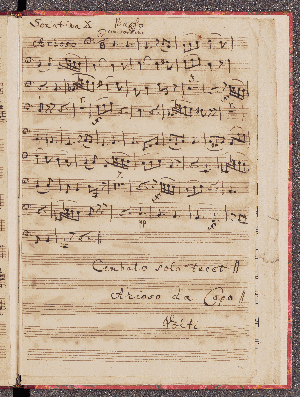 Sonatina X Basso
Arioso
Cembalo solo tacet
Arioso da Capo
Volti